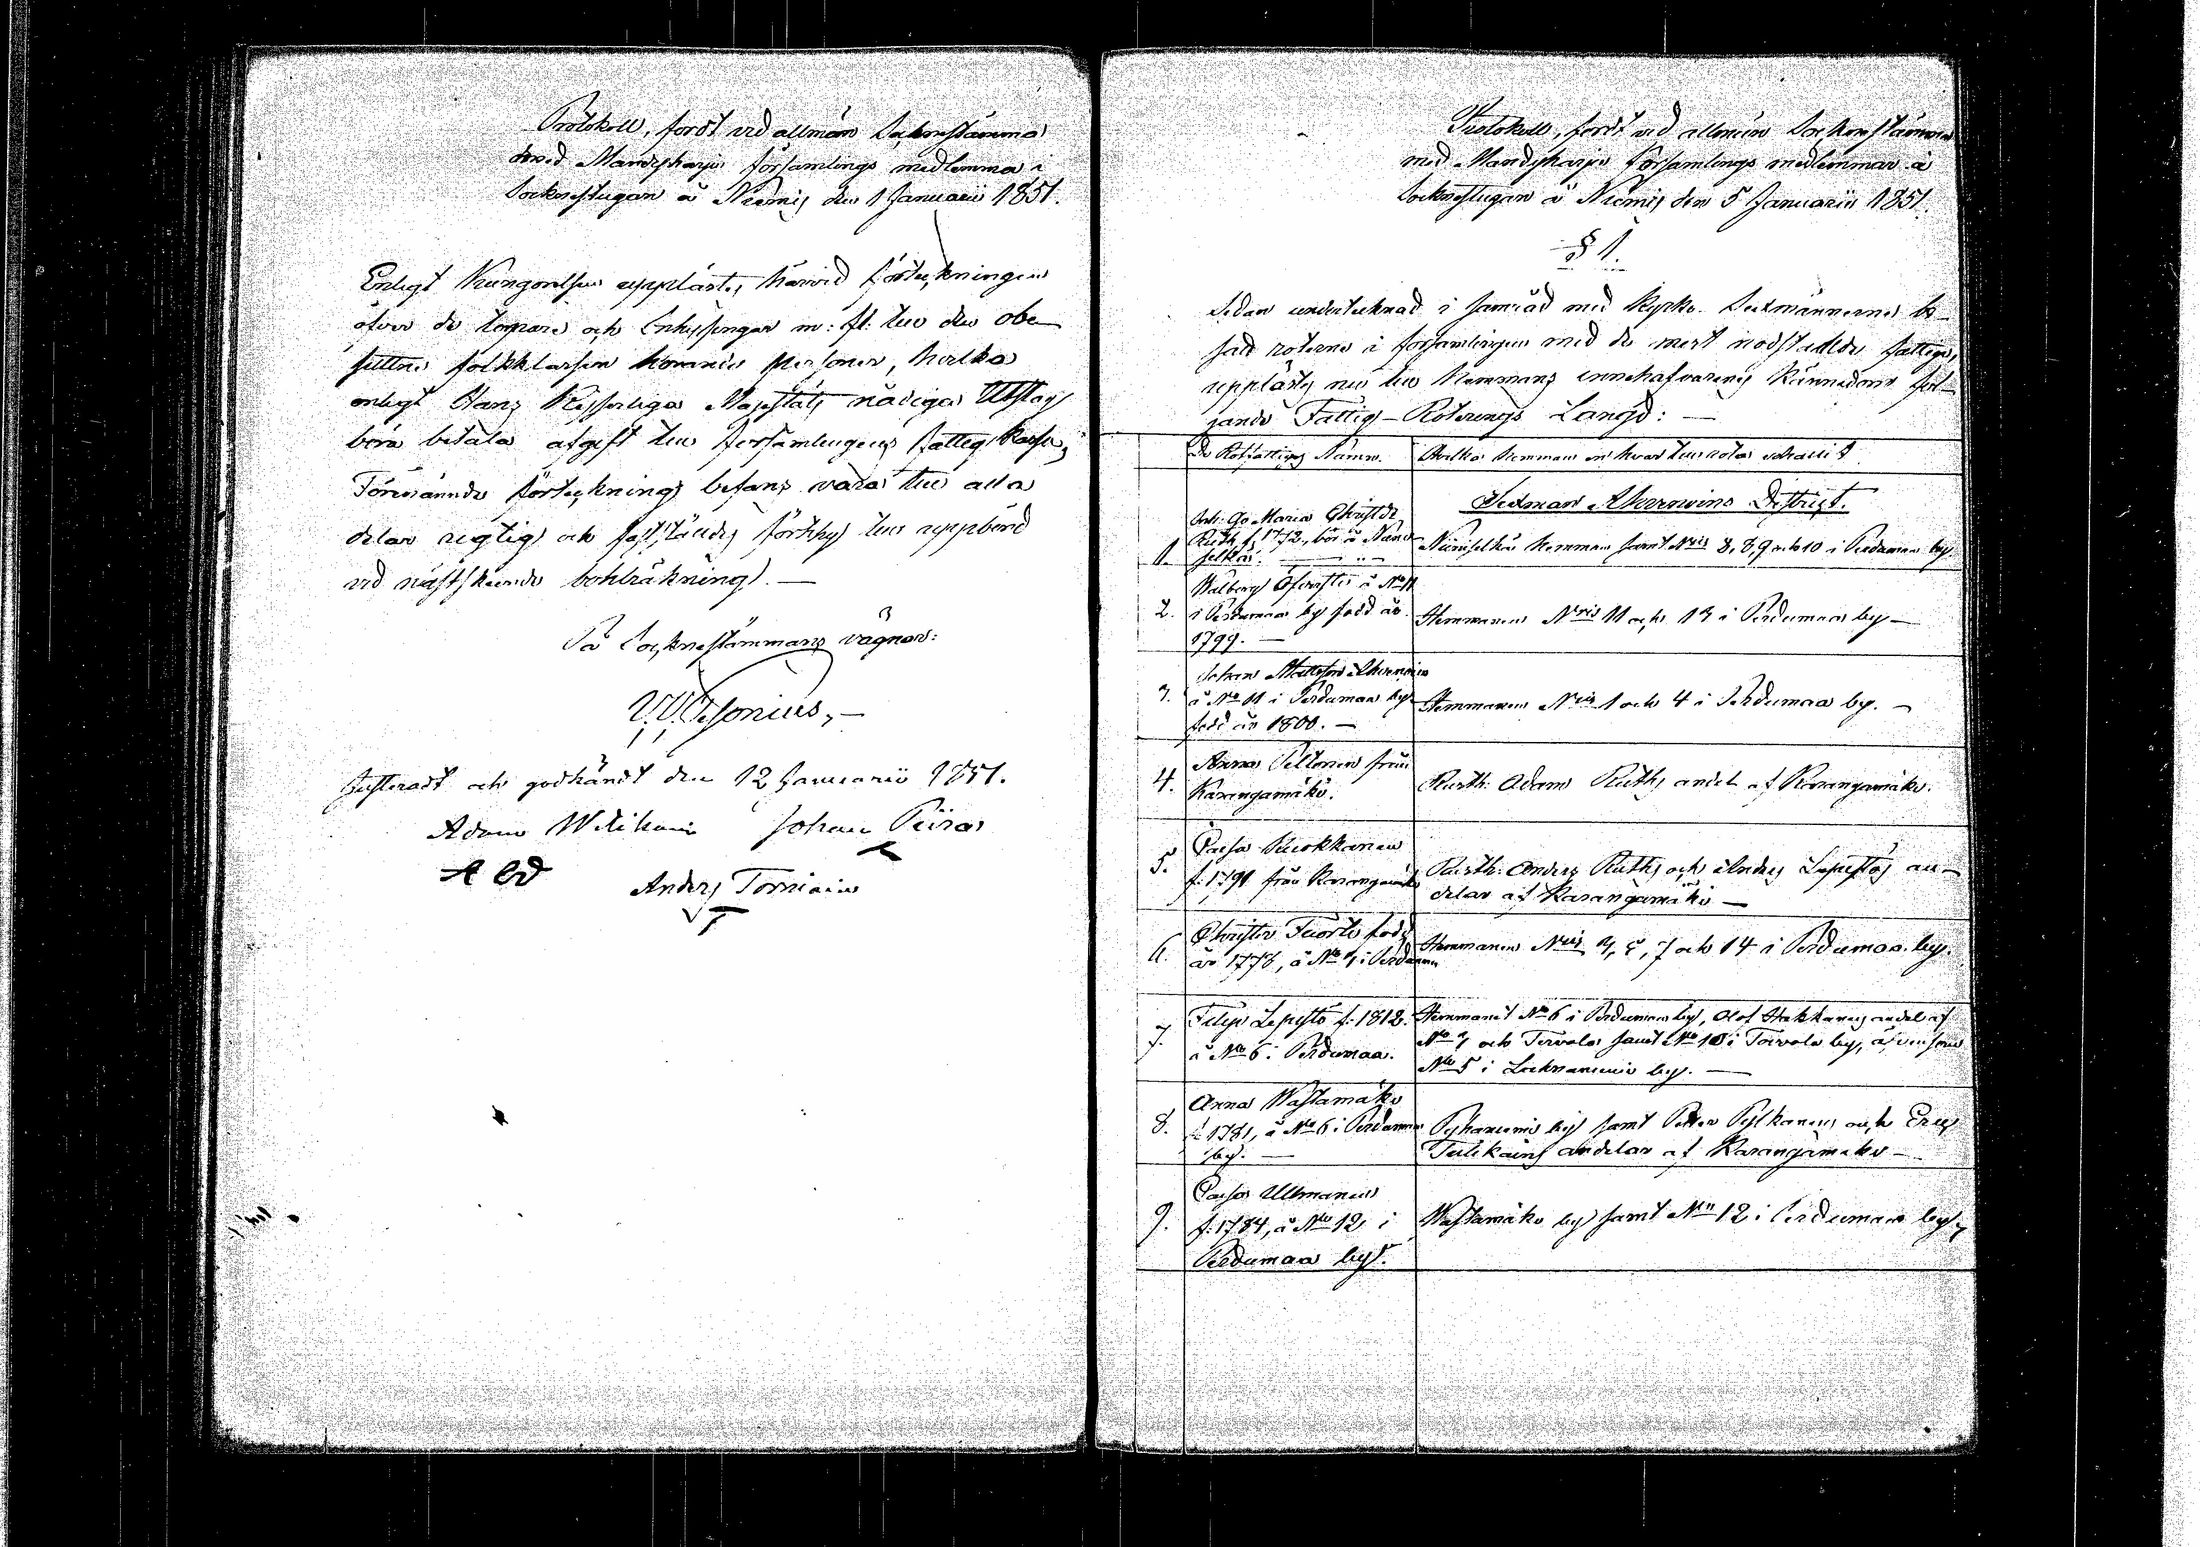 Protokoll, fördt vid allmän Socknestämma
med Mändyharju församlings medlemmar i
Socknestugan å Niemis den 1 Januarii 1851.
Enligt Kungörelsen upplästes härvid förteckningen
öfver de torpare och Inhysingar m: fl: till den obe-
sutna folkklassen komne personer, hvilka
enligt Hans Kejserliga Majestäts nådiga Utslag
böra betala afgift till församlingens fattig Kassa,
Förenämnde förteckning befans vara till alla
delar rigtig och fastställdes förthy till uppbörd
vid nästskeende bohlräkning. —
På Socknestämmans vägnar:
Justeradt och godkändt den 12 Januarii 1851.
Adam Johan Piira
Anders Torniain
Protokoll, fördt vid allmän Sockenstämma
med Mändyharju församlings medlemmar å
Socknestugan å Niemis den 5 Januarii 1851.
§ 1.
Sedan undertecknad i samråd med Kyrko-Sexmännerne be-
satt roterne i församlingen med de mest nödstälde fattiga,
upplästes nu till Hemmans innehafvarenes kännedom föl-
jande Fattig-Roterings Längd: —
De Rotfattiges Namn. Hvilka hemman en hvar till rotar
Sexman District.
1. Maria Christ:dr
Ruth f. 1772, bor å Niini-
selkä. Niiniselkä hemman samt N:ris 8, 9 och 10 i Pärdumaa by
2. Walborg å N:o 11
i Pärdumaa by född år
1799. — Hemmanen N:ris 11 och 13 i Pärdumaa by —
3. Johan Mattsson
å N:o 11 i Pärdumaa by
född år 1800. — Hemmanen N:ris 1 och 4 i Pärdumaa by. —
4. Anna Peltonen från
Karangamäki. Rusth: Adam Ruths andel af Karangamäki.
5. Puokkanen
f: 1791 från Karangamäki Rusth: Anders Ruths och Anders Lepistös an-
delar af Karangamäki —
6. Christer Tuorto född
år 1778, å N:o i Pärdumaa Hemmanen N:ris 7 och 14 i Pärdumaa by.
7. Filip Lepistö f: 1812.
å N:o 6 i Pärdumaa. Hemmanet N:o 6 i Pärdumaa by, Olof Hokkanens andel af
N:o och Toivola samt N:o 10 i Toivola by, äfvensom
N:o 5 i Locknaniemi by. —
8. Anna Wastamäki
f: 1781, å N:o 6 i Pärdumaa
by. — Pyhäniemi by samt Petter Pylkänens och Erics
Tulikains andelar af Karangamäki —
9. Ullmanen
f: 1784, å N:o 12, i
Pärdumaa by. Wastamäki by samt N:o 12 i Pärdumaa by,